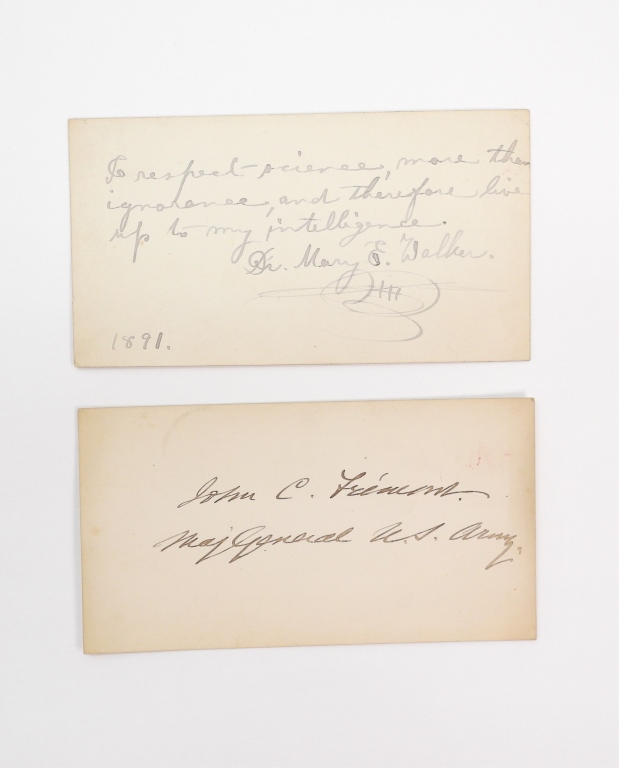 To respect science, more than
ignorance, and therefore live
up to my intelligence.
Dr. Mary E. Walker.
1891.
John C. Frémont.
Maj General U.S. Army.